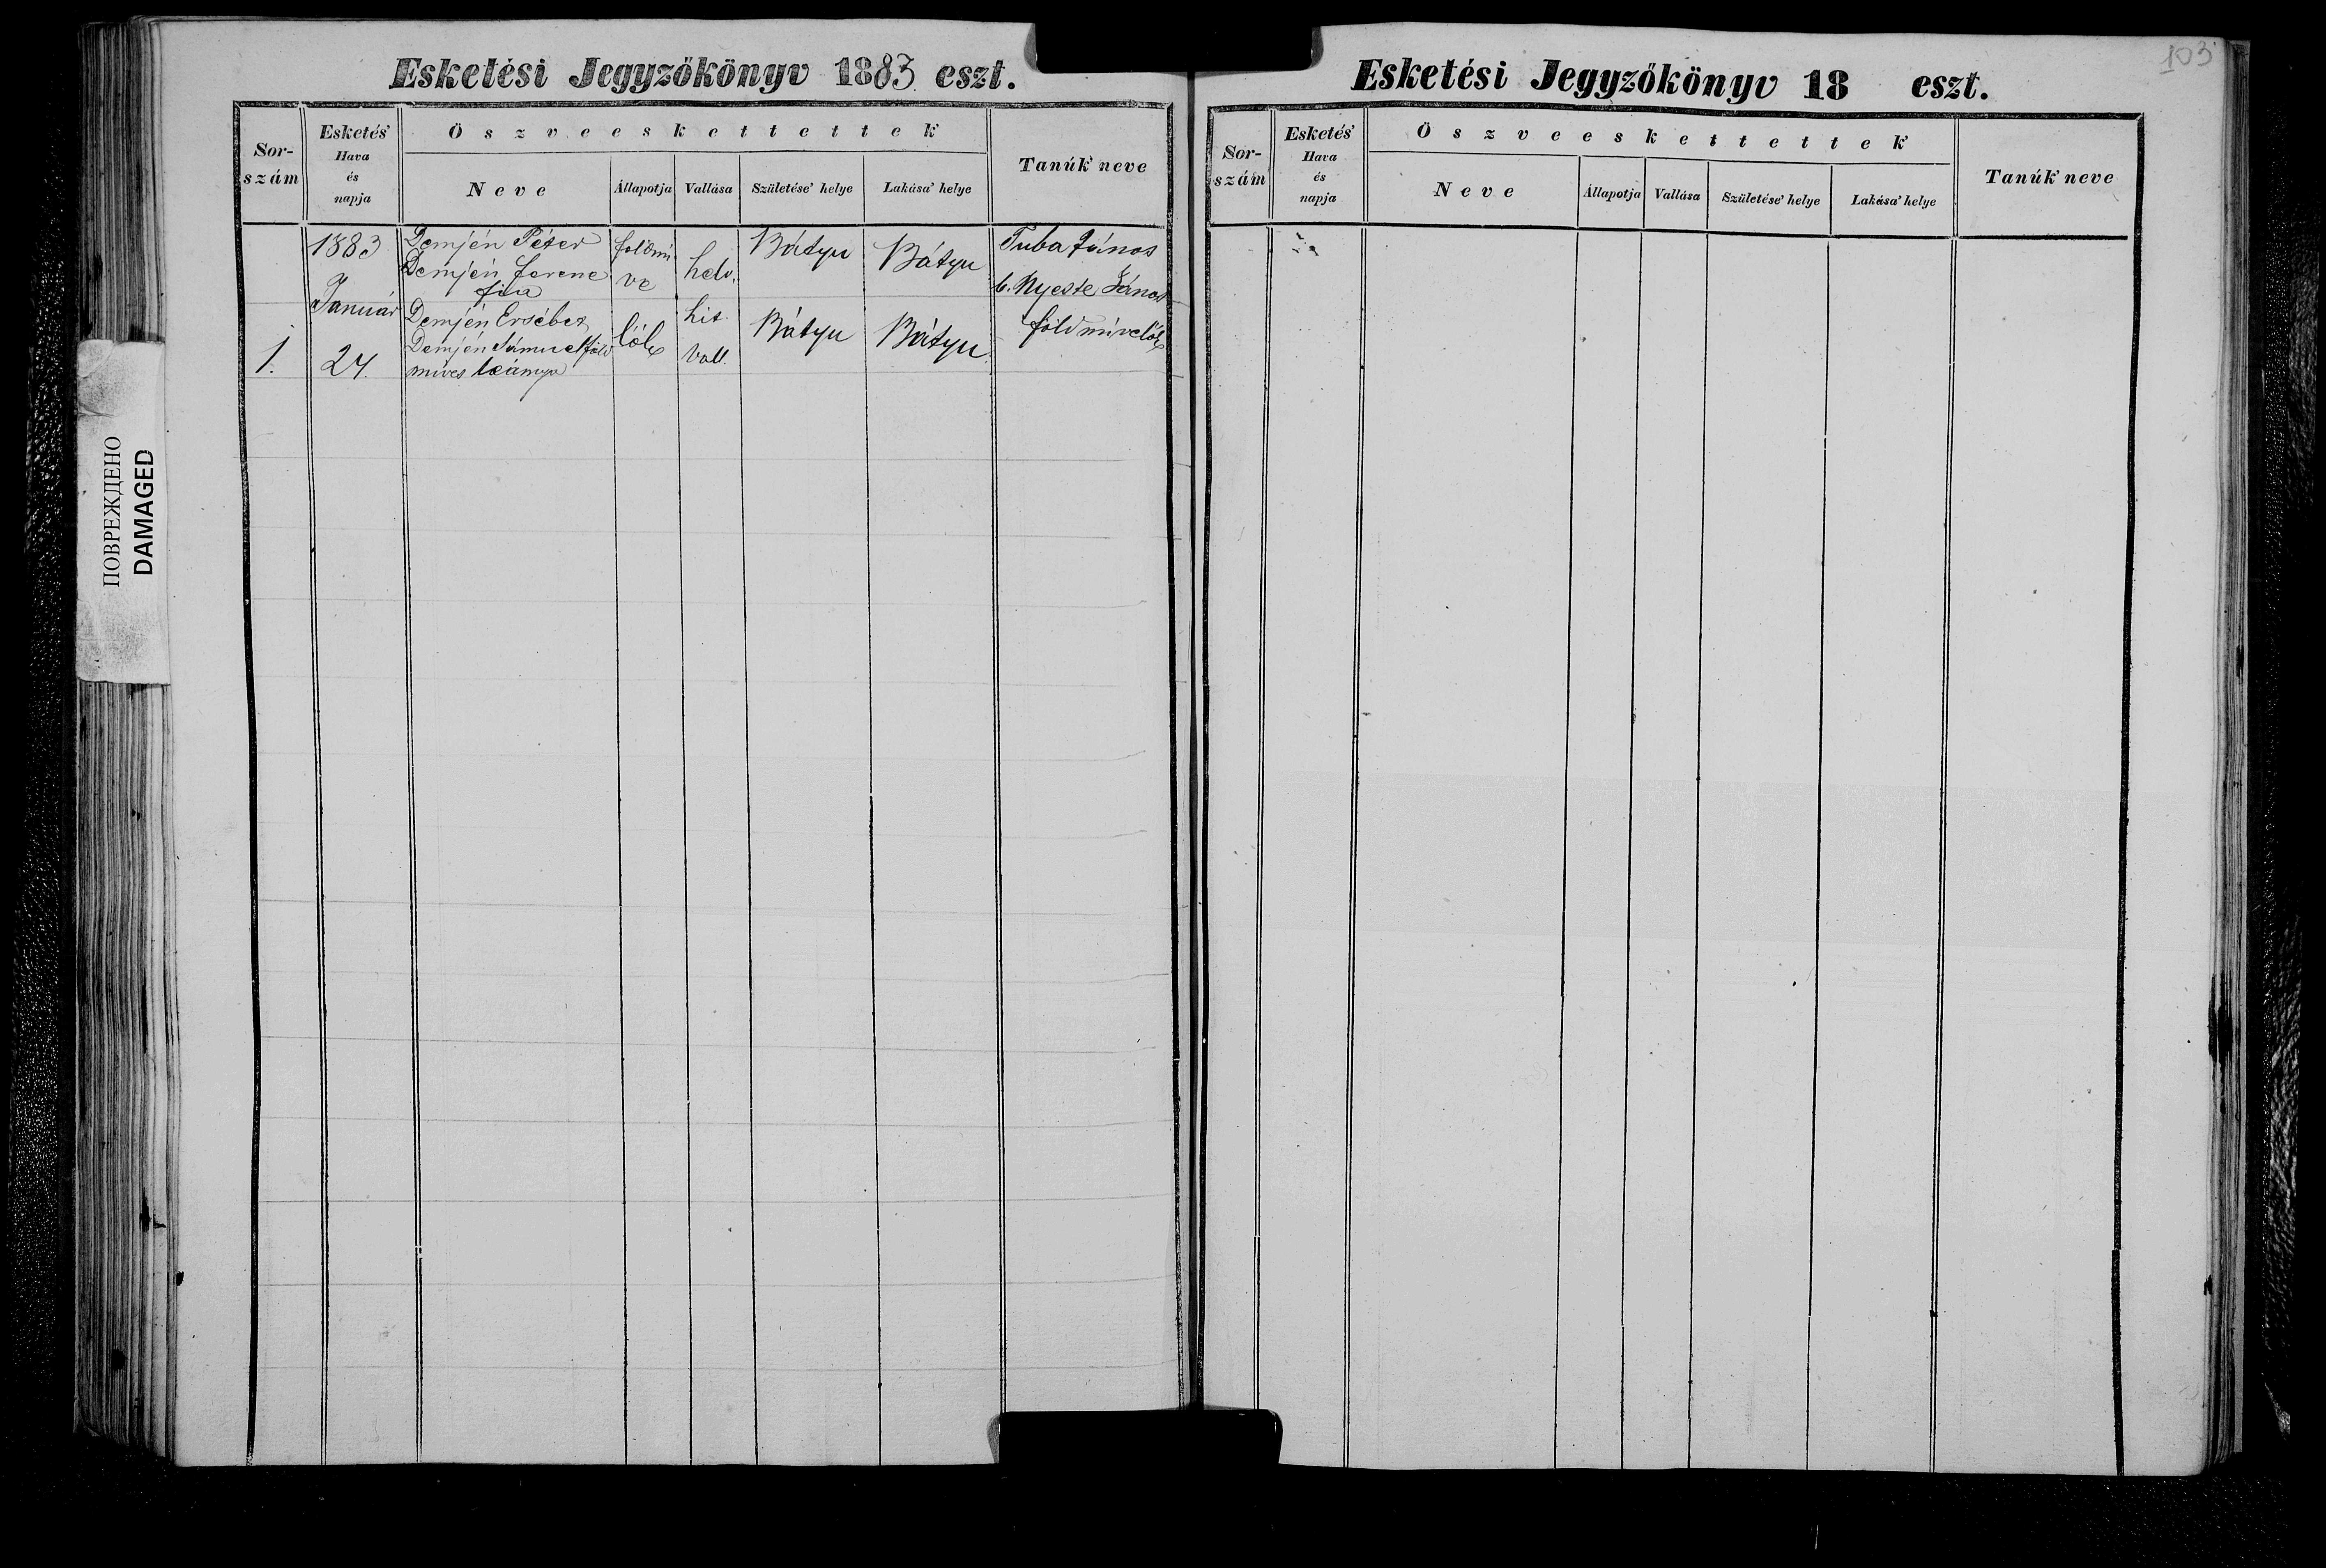 Esketési Jegyzőkönyv 1883 eszt.
Sor-
szám
Esketés'
Hava
és
napja
Öszveeskettettek
Neve
Állapotja
Vallása
Születése' helye
Lakása' helye
Tanúk neve
1883
Január
1.
24.
Demjén Péter
Demjén Ferenc
fia
Demjén Ersébet
Demjén Sámuel föld
míves leánya
földmí
ve
lök
helv.
hit.
vall.
Bátyu
Bátyu
Bátyu
Bátyu
Tuba János
b. Nyeste János
földmívelők
Esketési Jegyzőkönyv 18 eszt.
103
Sor-
szám
Esketés'
Hava
és
napja
Öszveeskettettek
Neve
Állapotja
Vallása
Születése' helye
Lakása' helye
Tanúk neve
ПОВРЕЖДЕНО
DAMAGED